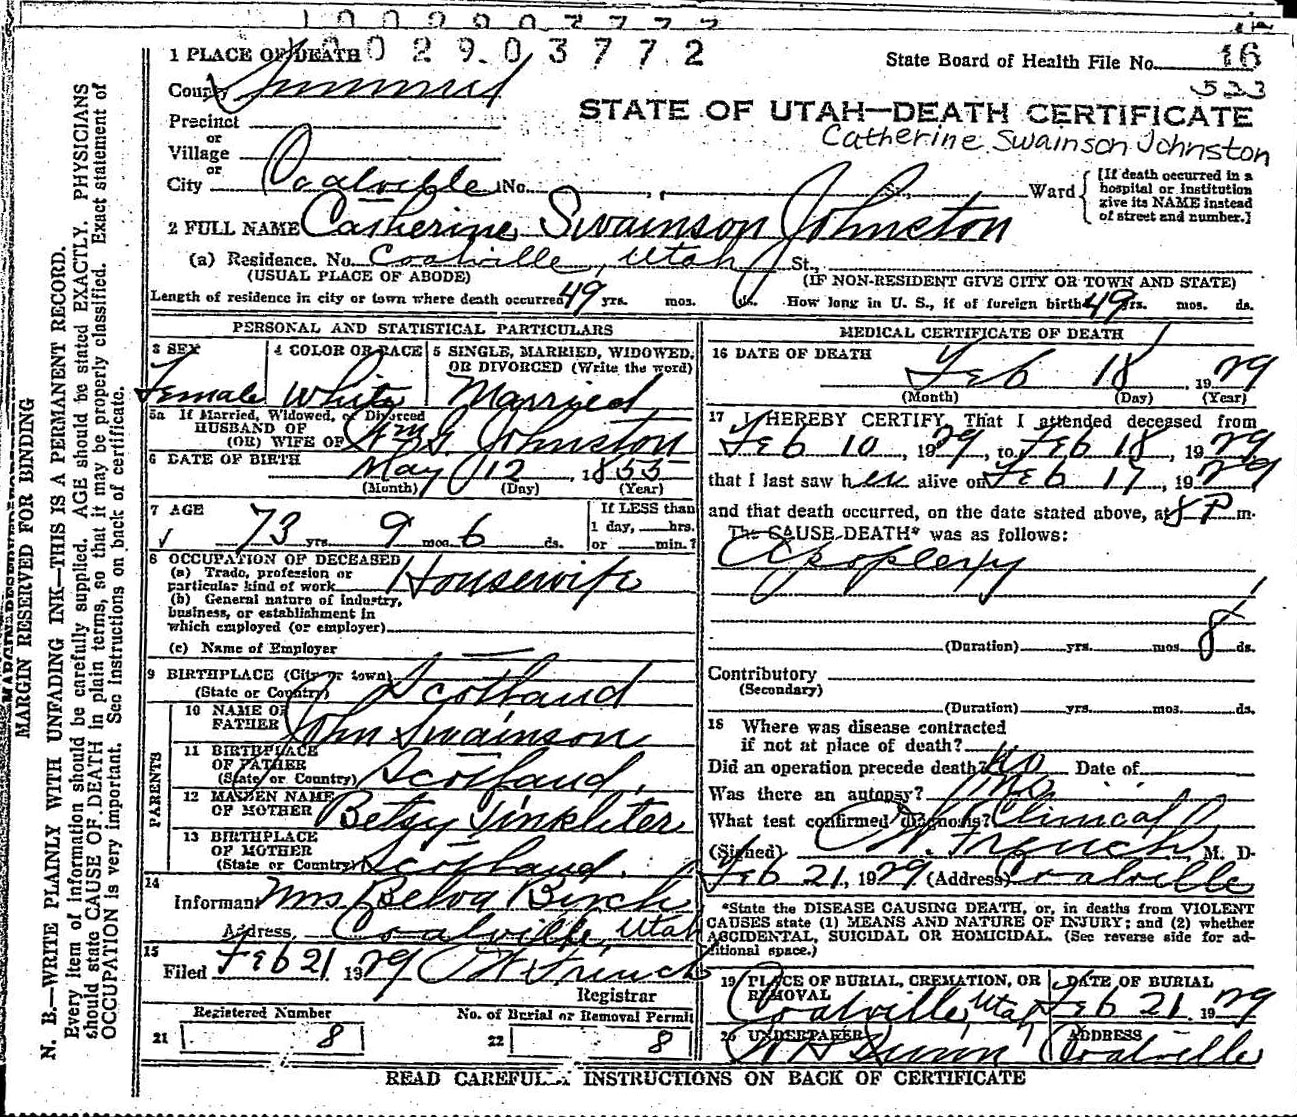 1 0 0 2 9 0 3 7 7 7 2
1 0 0 2 9 0 3 7 7 2
1 PLACE OF DEATH
State Board of Health File No. 16
523
County Summit
STATE OF UTAH—DEATH CERTIFICATE
Catherine Swainson Johnston
Precinct
or
Village
or
City Coalville No. St., Ward
[If death occurred in a hospital or institution give its NAME instead of street and number.]
2 FULL NAME Catherine Swainson Johnston
(a) Residence. No. Coalville, Utah St.,
(USUAL PLACE OF ABODE) (IF NON-RESIDENT GIVE CITY OR TOWN AND STATE)
Length of residence in city or town where death occurred 49 yrs. mos. ds. How long in U. S., if of foreign birth 49 yrs. mos. ds.
PERSONAL AND STATISTICAL PARTICULARS
3 SEX Female
4 COLOR OR RACE White
5 SINGLE, MARRIED, WIDOWED, OR DIVORCED (Write the word) Married
5a If Married, Widowed, or Divorced
HUSBAND OF
(OR) WIFE OF Wm G Johnston
6 DATE OF BIRTH May 12, 1855
(Month) (Day) (Year)
7 AGE 73 yrs. 9 mos. 6 ds.
If LESS than
1 day, hrs.
or min.?
8 OCCUPATION OF DECEASED
(a) Trade, profession or
particular kind of work Housewife
(b) General nature of industry,
business, or establishment in
which employed (or employer)
(c) Name of Employer
9 BIRTHPLACE (City or town)
(State or Country) Scotland
PARENTS
10 NAME OF
FATHER John Swainson
11 BIRTHPLACE
OF FATHER
(State or Country) Scotland.
12 MAIDEN NAME
OF MOTHER Betsy Tinkleter
13 BIRTHPLACE
OF MOTHER
(State or Country) Scotland.
14
Informant Mrs Belva Birch
Address, Coalville, Utah
15
Filed Feb 21 1929
Registrar
Registered Number
21 8
No. of Burial or Removal Permit
22 8
MEDICAL CERTIFICATE OF DEATH
16 DATE OF DEATH
Feb 18, 1929
(Month) (Day) (Year)
17 I HEREBY CERTIFY, That I attended deceased from
Feb 10, 1929, to Feb 18, 1929
that I last saw her alive on Feb 17, 1929,
and that death occurred, on the date stated above, at 8 P m.
The CAUSE DEATH* was as follows:
Apoplexy
(Duration) yrs. mos. 8 ds.
Contributory
(Secondary)
(Duration) yrs. mos. ds.
18 Where was disease contracted
if not at place of death?
Did an operation precede death? No Date of
Was there an autopsy? No
What test confirmed diagnosis? Clinical
(Signed) French, M. D.
Feb 21, 1929 (Address) Coalville
*State the DISEASE CAUSING DEATH, or, in deaths from VIOLENT
CAUSES state (1) MEANS AND NATURE OF INJURY; and (2) whether
ACCIDENTAL, SUICIDAL OR HOMICIDAL. (See reverse side for ad-
ditional space.)
19 PLACE OF BURIAL, CREMATION, OR
REMOVAL
Coalville, Utah
DATE OF BURIAL
Feb 21. 1929
20 UNDERTAKER
Dunn
ADDRESS
Coalville
READ CAREFULLY INSTRUCTIONS ON BACK OF CERTIFICATE
MARGIN RESERVED FOR BINDING
N. B.—WRITE PLAINLY WITH UNFADING INK—THIS IS A PERMANENT RECORD.
Every item of information should be carefully supplied. AGE should be stated EXACTLY. PHYSICIANS
should state CAUSE OF DEATH in plain terms, so that it may be properly classified. Exact statement of
OCCUPATION is very important. See Instructions on back of certificate.